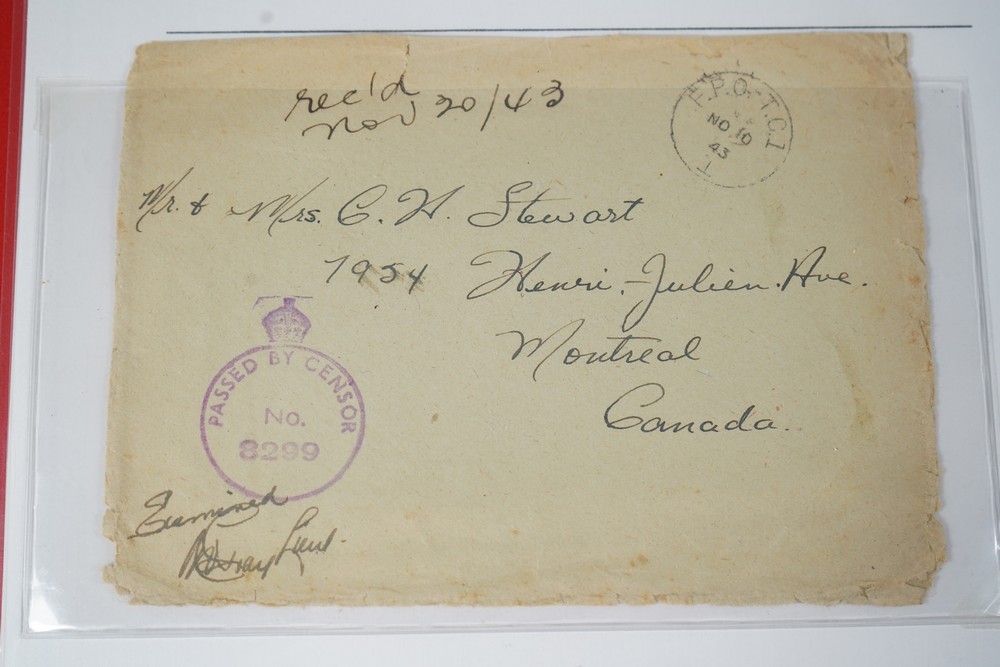 rec'd
Nov 20/43
F.P.O.-T.C.1
NO 10
43
T
Mr. & Mrs. C. H. Stewart
7954 Henri-Julien Ave.
Montreal
Canada.
PASSED BY CENSOR
No.
8299
Examined
Lieut.